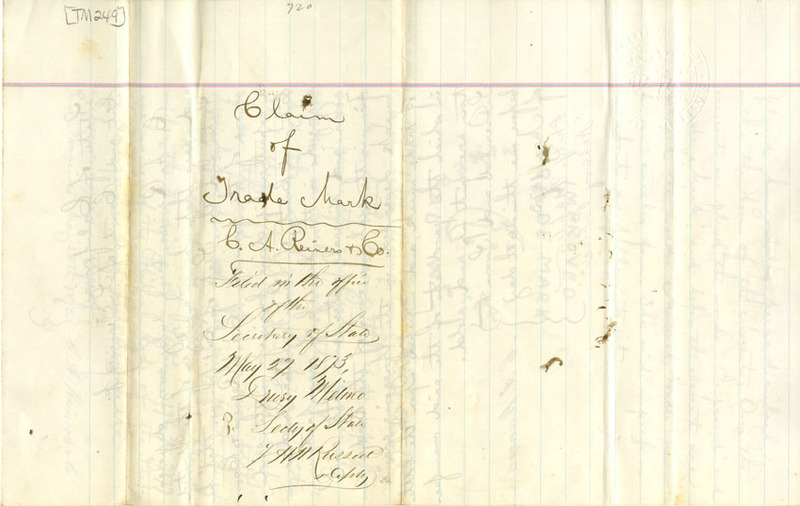 [TM249]
720
Claim
of
Trade Mark
C. A. Reiners & Co.
Filed in the office
of the
Secretary of State
May 27 1873,
Drury Melone
Secty of State
Russell
Depty